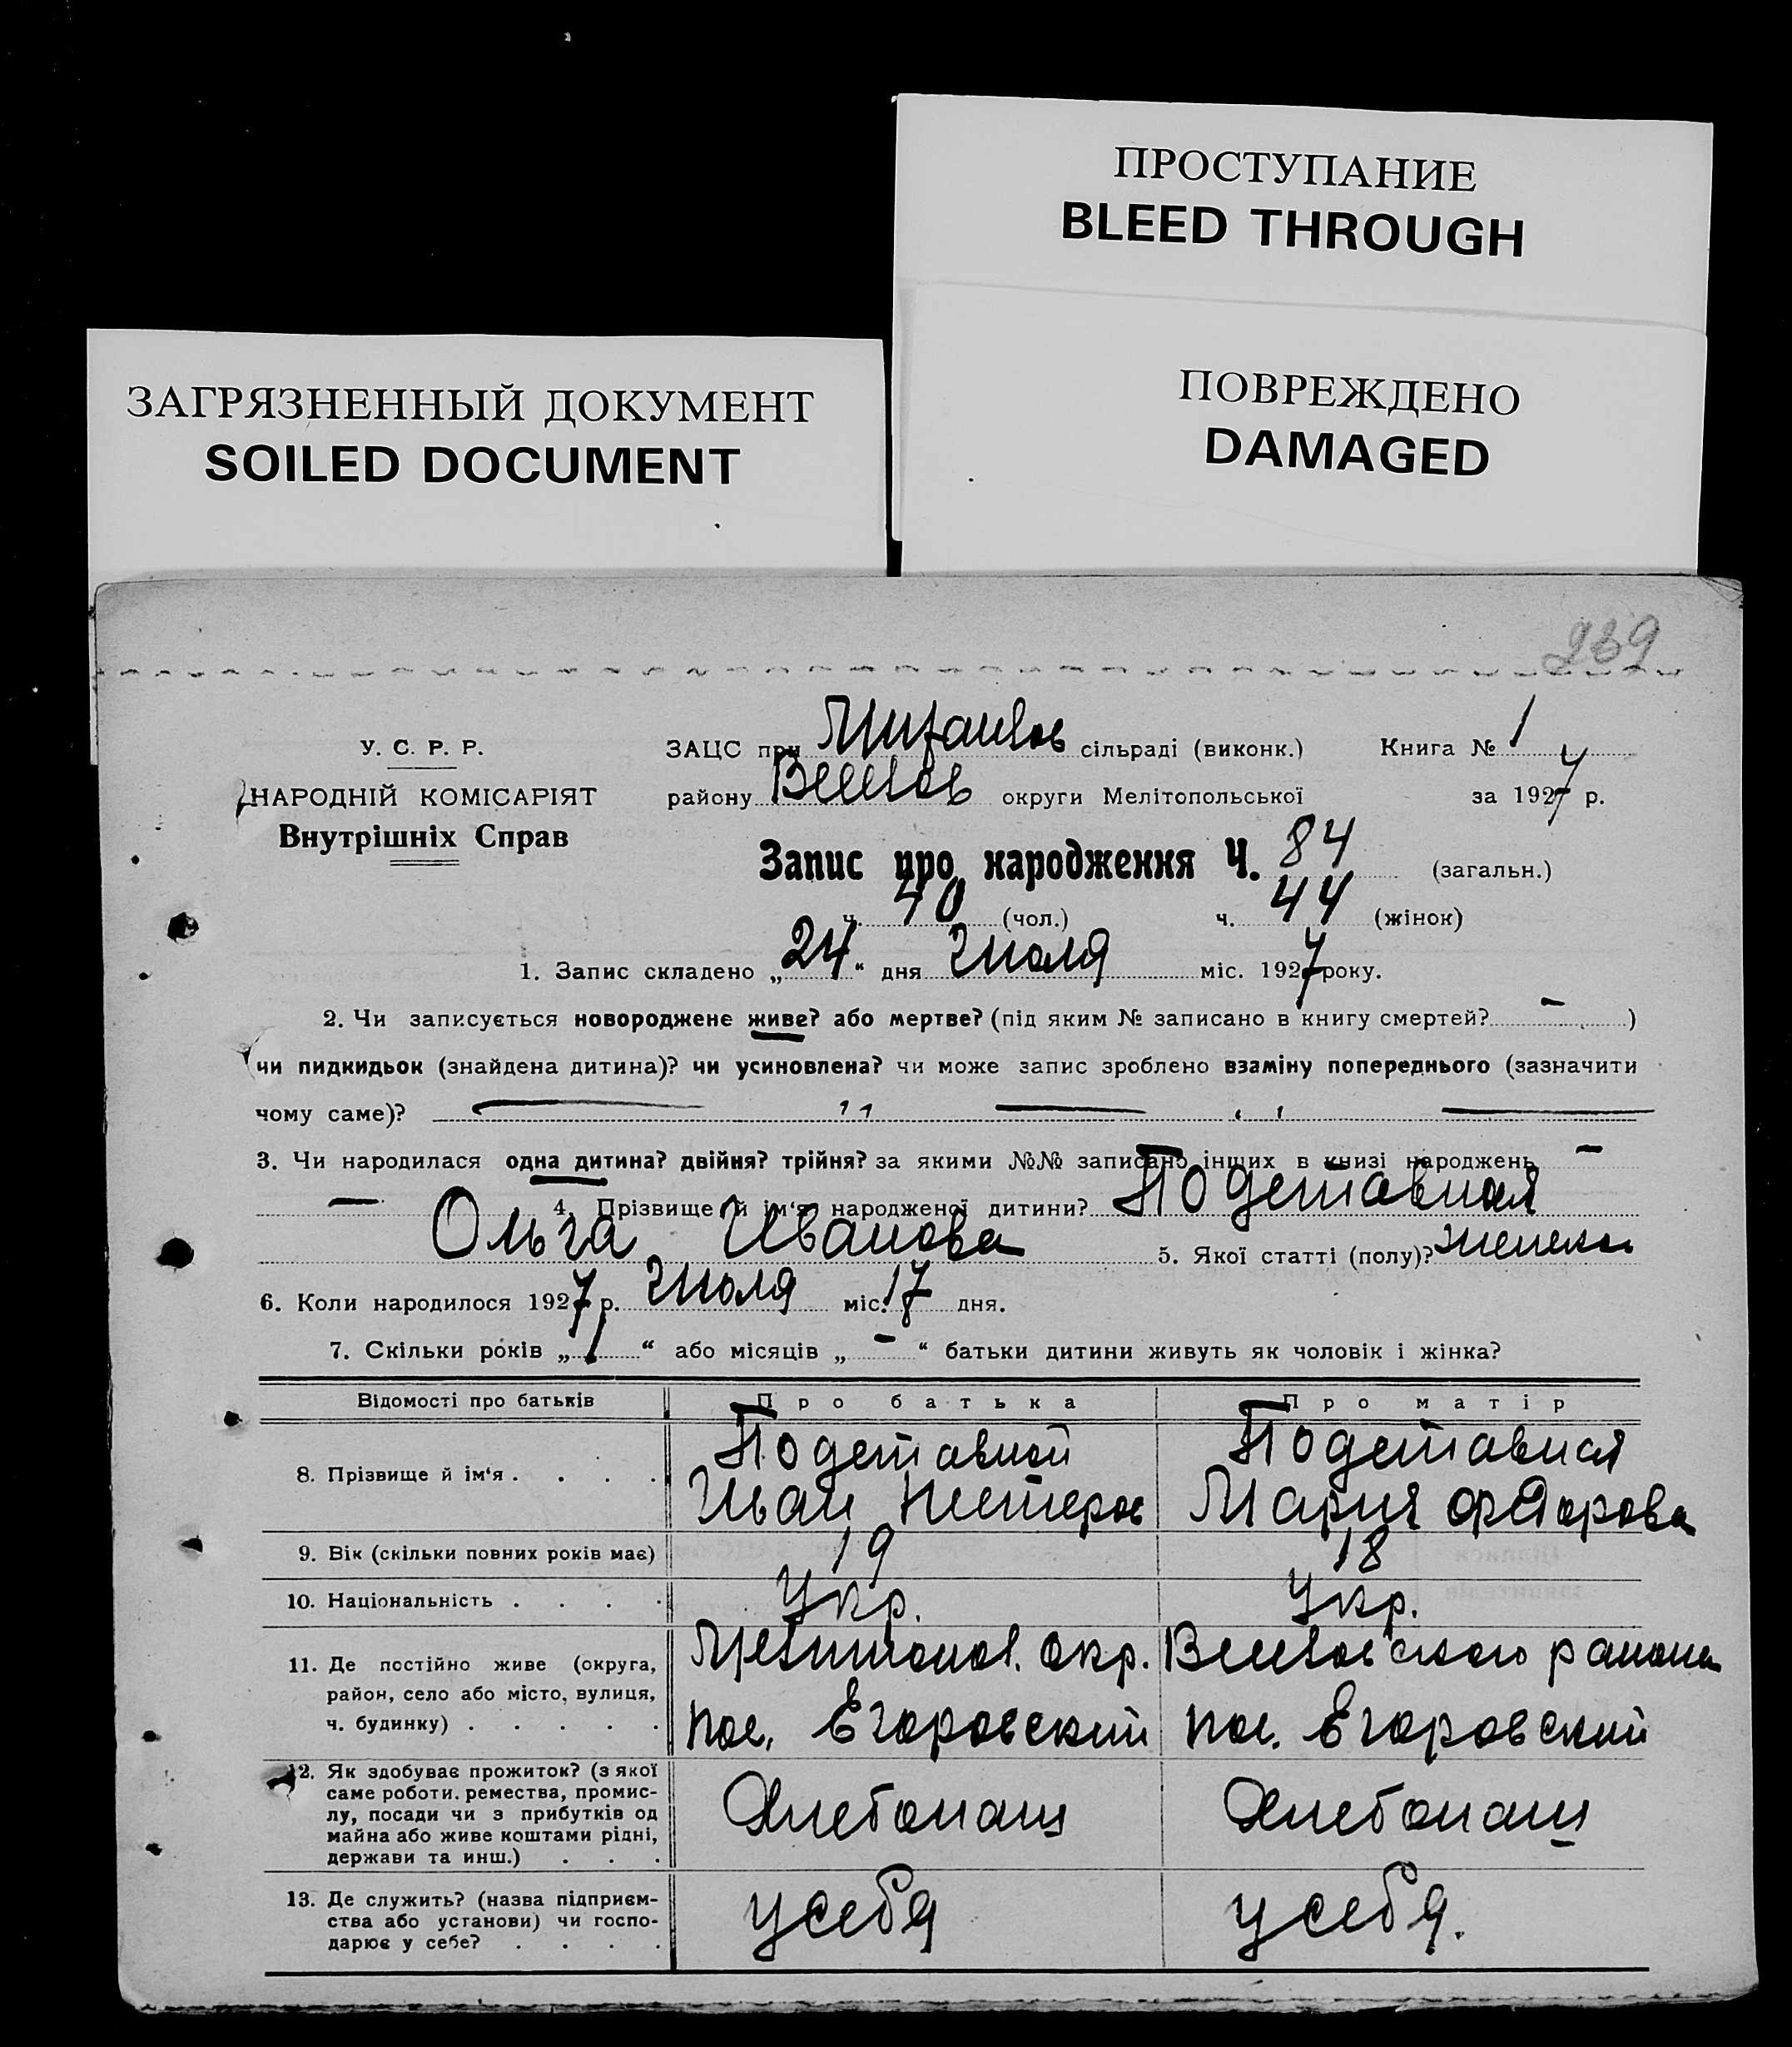 ПРОСТУПАНИЕ
BLEED THROUGH
ЗАГРЯЗНЕННЫЙ ДОКУМЕНТ
SOILED DOCUMENT
ПОВРЕЖДЕНО
DAMAGED
239
У. С. Р. Р.
НАРОДНІЙ КОМІСАРІЯТ
Внутрішніх Справ
ЗАЦС при сільраді (виконк.) Книга № 1
району Веселов округи Мелітопольської за 1927 р.
Запис про народження Ч. 84 (загальн.)
ч. 40 (чол.) ч. 44 (жінок)
1. Запис складено „24“ дня Июля міс. 1927 року.
2. Чи записується новороджене живе? або мертве? (під яким № записано в книгу смертей? — )
чи пидкидьок (знайдена дитина)? чи усиновлена? чи може запис зроблено взаміну попереднього (зазначити
чому саме)? — " — " —
3. Чи народилася одна дитина? двійня? трійня? за якими №№ записано інших в книзі народжень —
— 4. Прізвище й ім'я народженої дитини? Подставная
Ольга Иванова 5. Якої статті (полу)? женск
6. Коли народилося 1927 р. Июля міс. 17 дня.
7. Скільки років „1“ або місяців „—“ батьки дитини живуть як чоловік і жінка?
Відомості про батьків Про батька Про матір
8. Прізвище й ім'я . . . . Подставной Подставная
Иван Нестеров Мария Фядорова
9. Вік (скільки повних років має) 19 18
10. Національність . . . . Укр. Укр.
11. Де постійно живе (округа, Мелитопол. окр. Веселовского района
район, село або місто, вулиця,
ч. будинку) . . . . . пос. Егоровский пос. Егоровский
12. Як здобуває прожиток? (з якої
саме роботи, ремества, промис-
лу, посади чи з прибутків од Хлебопаш Хлебопаш
майна або живе коштами рідні,
держави та инш.) . . .
13. Де служить? (назва підприєм- у себя у себя.
ства або установи) чи госпо-
дарює у себе? . . . .